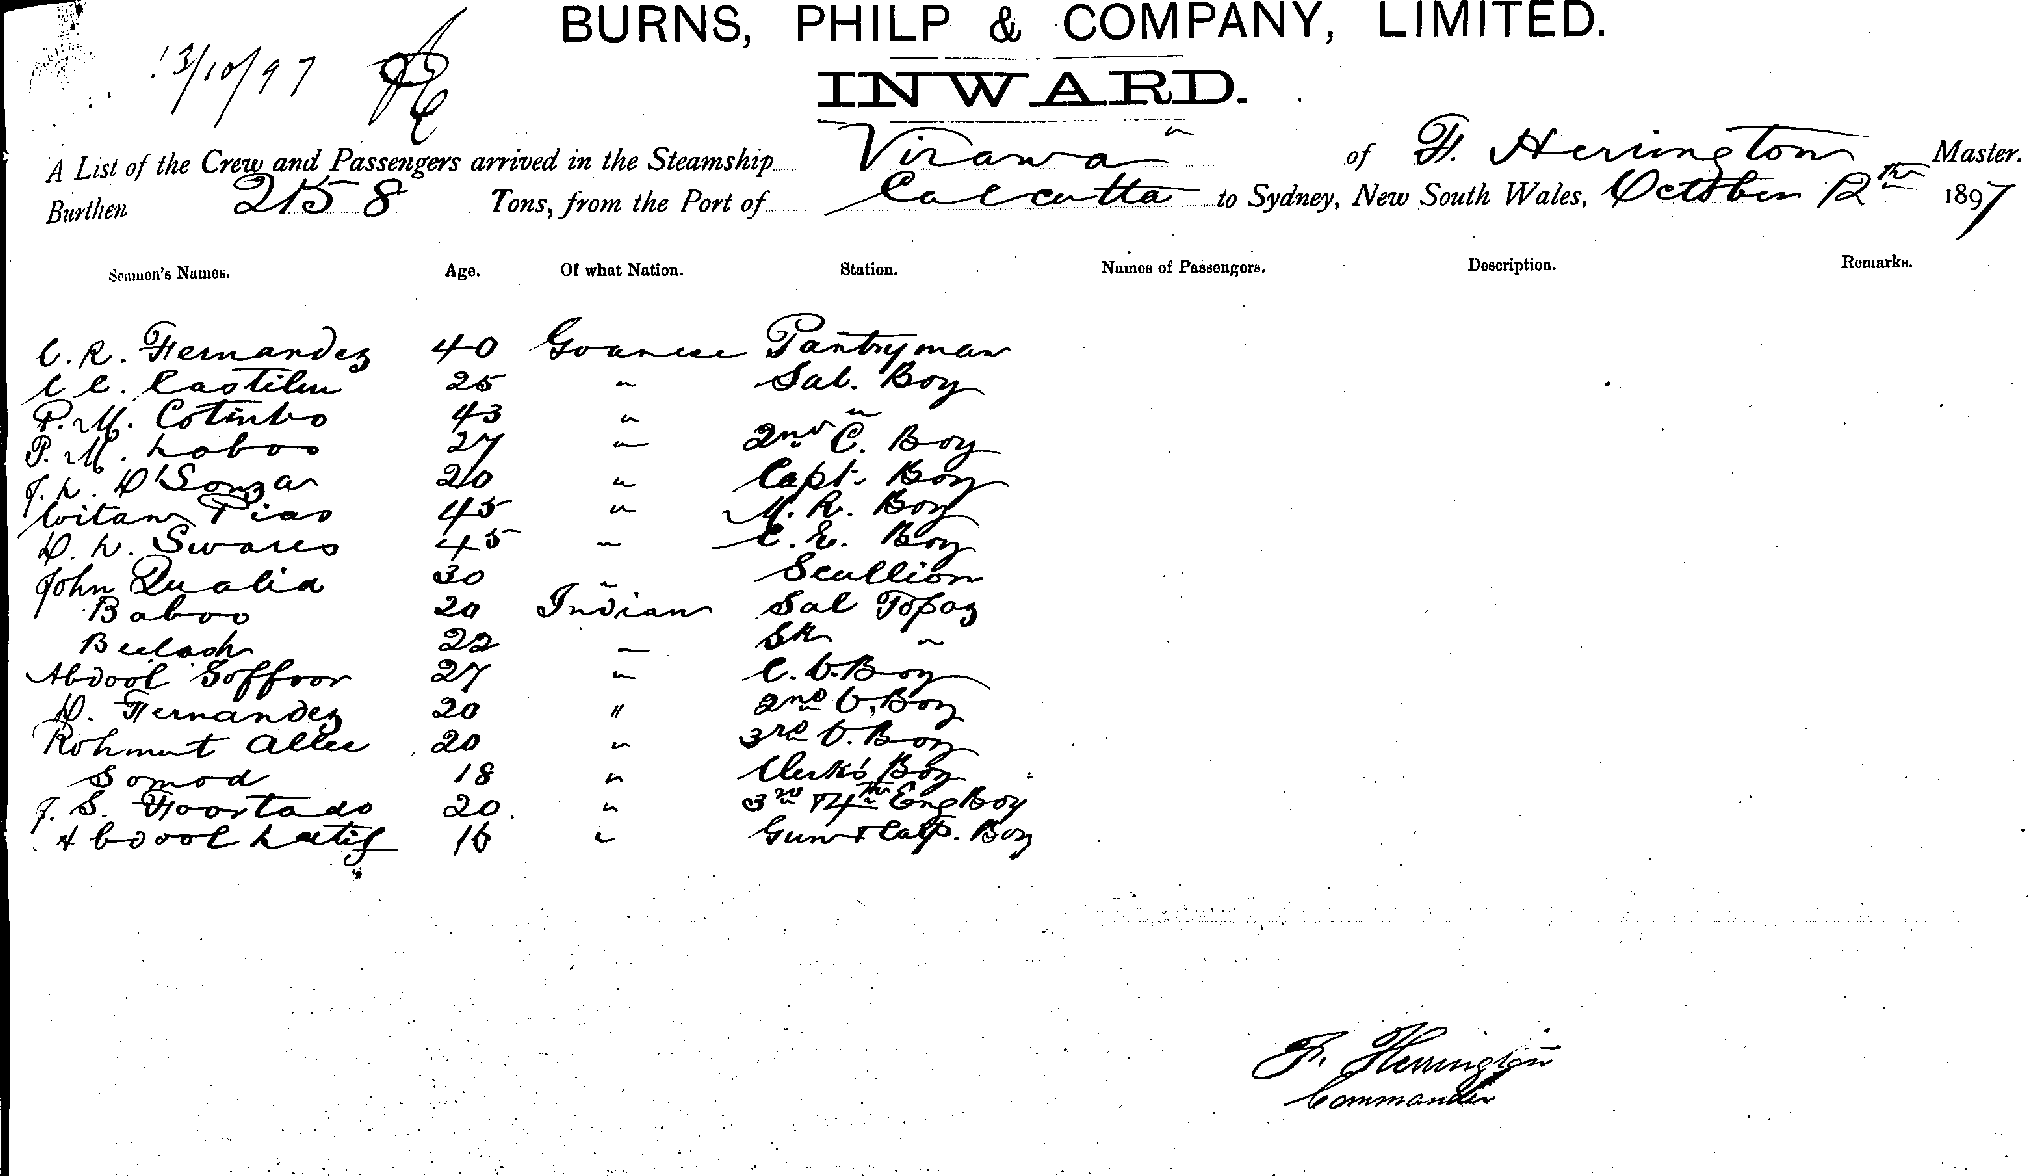 BURNS, PHILP & COMPANY, LIMITED.
13/10/97
INWARD.
A List of the Crew and Passengers arrived in the Steamship Virawa of F. Herrington Master.
Burthen 2158 Tons, from the Port of Calcutta to Sydney, New South Wales, October 12th 1897
Seamen's Names. Age. Of what Nation. Station. Names of Passengers. Description. Remarks.
C. R. Fernandez 40 Goanese Pantryman
C. C. Castilin 25 " Sal. Boy
P. M. Cotinho 43 " "
P. M. Lobos 27 " 2nd C. Boy
J. L. D'Souza 20 " Capt. Boy
Coitan Pias 45 " M. R. Boy
D. L. Swares 45 " C. E. Boy
John Qualid 30 " Scullion
Baboo 20 Indian Sal Topaz
Beelash 22 " SK "
Abdool Goffoor 27 " C. O. Boy
D. Fernandez 20 " 2nd O. Boy
Rohmut Allee 20 " 3rd O. Boy
Somod 18 " Clerk's Boy
J. S. Foortado 20 " 3rd & 4th Eng Boy
Abdool Latif 16 " Gun & Carp. Boy
F. Herrington
Commander